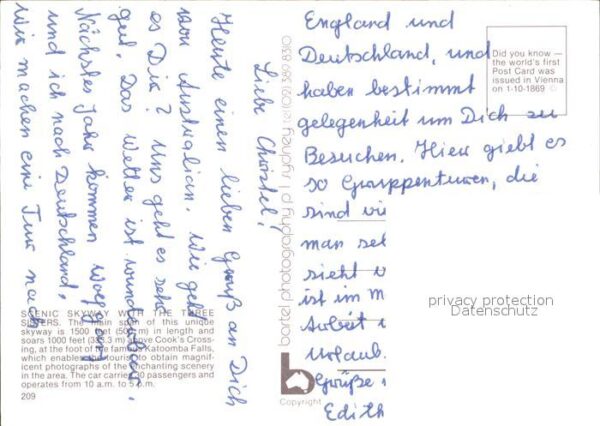 Liebe Christel!
Heute einen lieben Gruß an Dich
von Australian. Wie geht
es Dir? Uns geht es sehr
gut. Das Wetter ist wunderbar.
Nächstes Jahr kommen Wolfgang
und ich nach Deutschland,
wir machen eine Tur nach
England und
Deutschland, und
haben bestimmt
gelegenheit um Dich zu
Besuchen. Hier giebt es
so Gruppenturen, die
sind
man
sieht
ist im
Arbeit
Urlaub.
Grüße
Edith
Did you know —
the world's first
Post Card was
issued in Vienna
on 1-10-1869
SCENIC SKYWAY WITH THE THREE
SISTERS. The main span of this unique
skyway is 1500 feet (500 m) in length and
soars 1000 feet above Cook's Cross-
ing, at the foot of the famous Katoomba Falls,
which enables tourists to obtain magnif-
icent photographs of the enchanting scenery
in the area. The car carries 30 passengers and
operates from 10 a.m. to 5 p.m.
209
bartel photography p l sydney
b
Copyright
privacy protection
Datenschutz